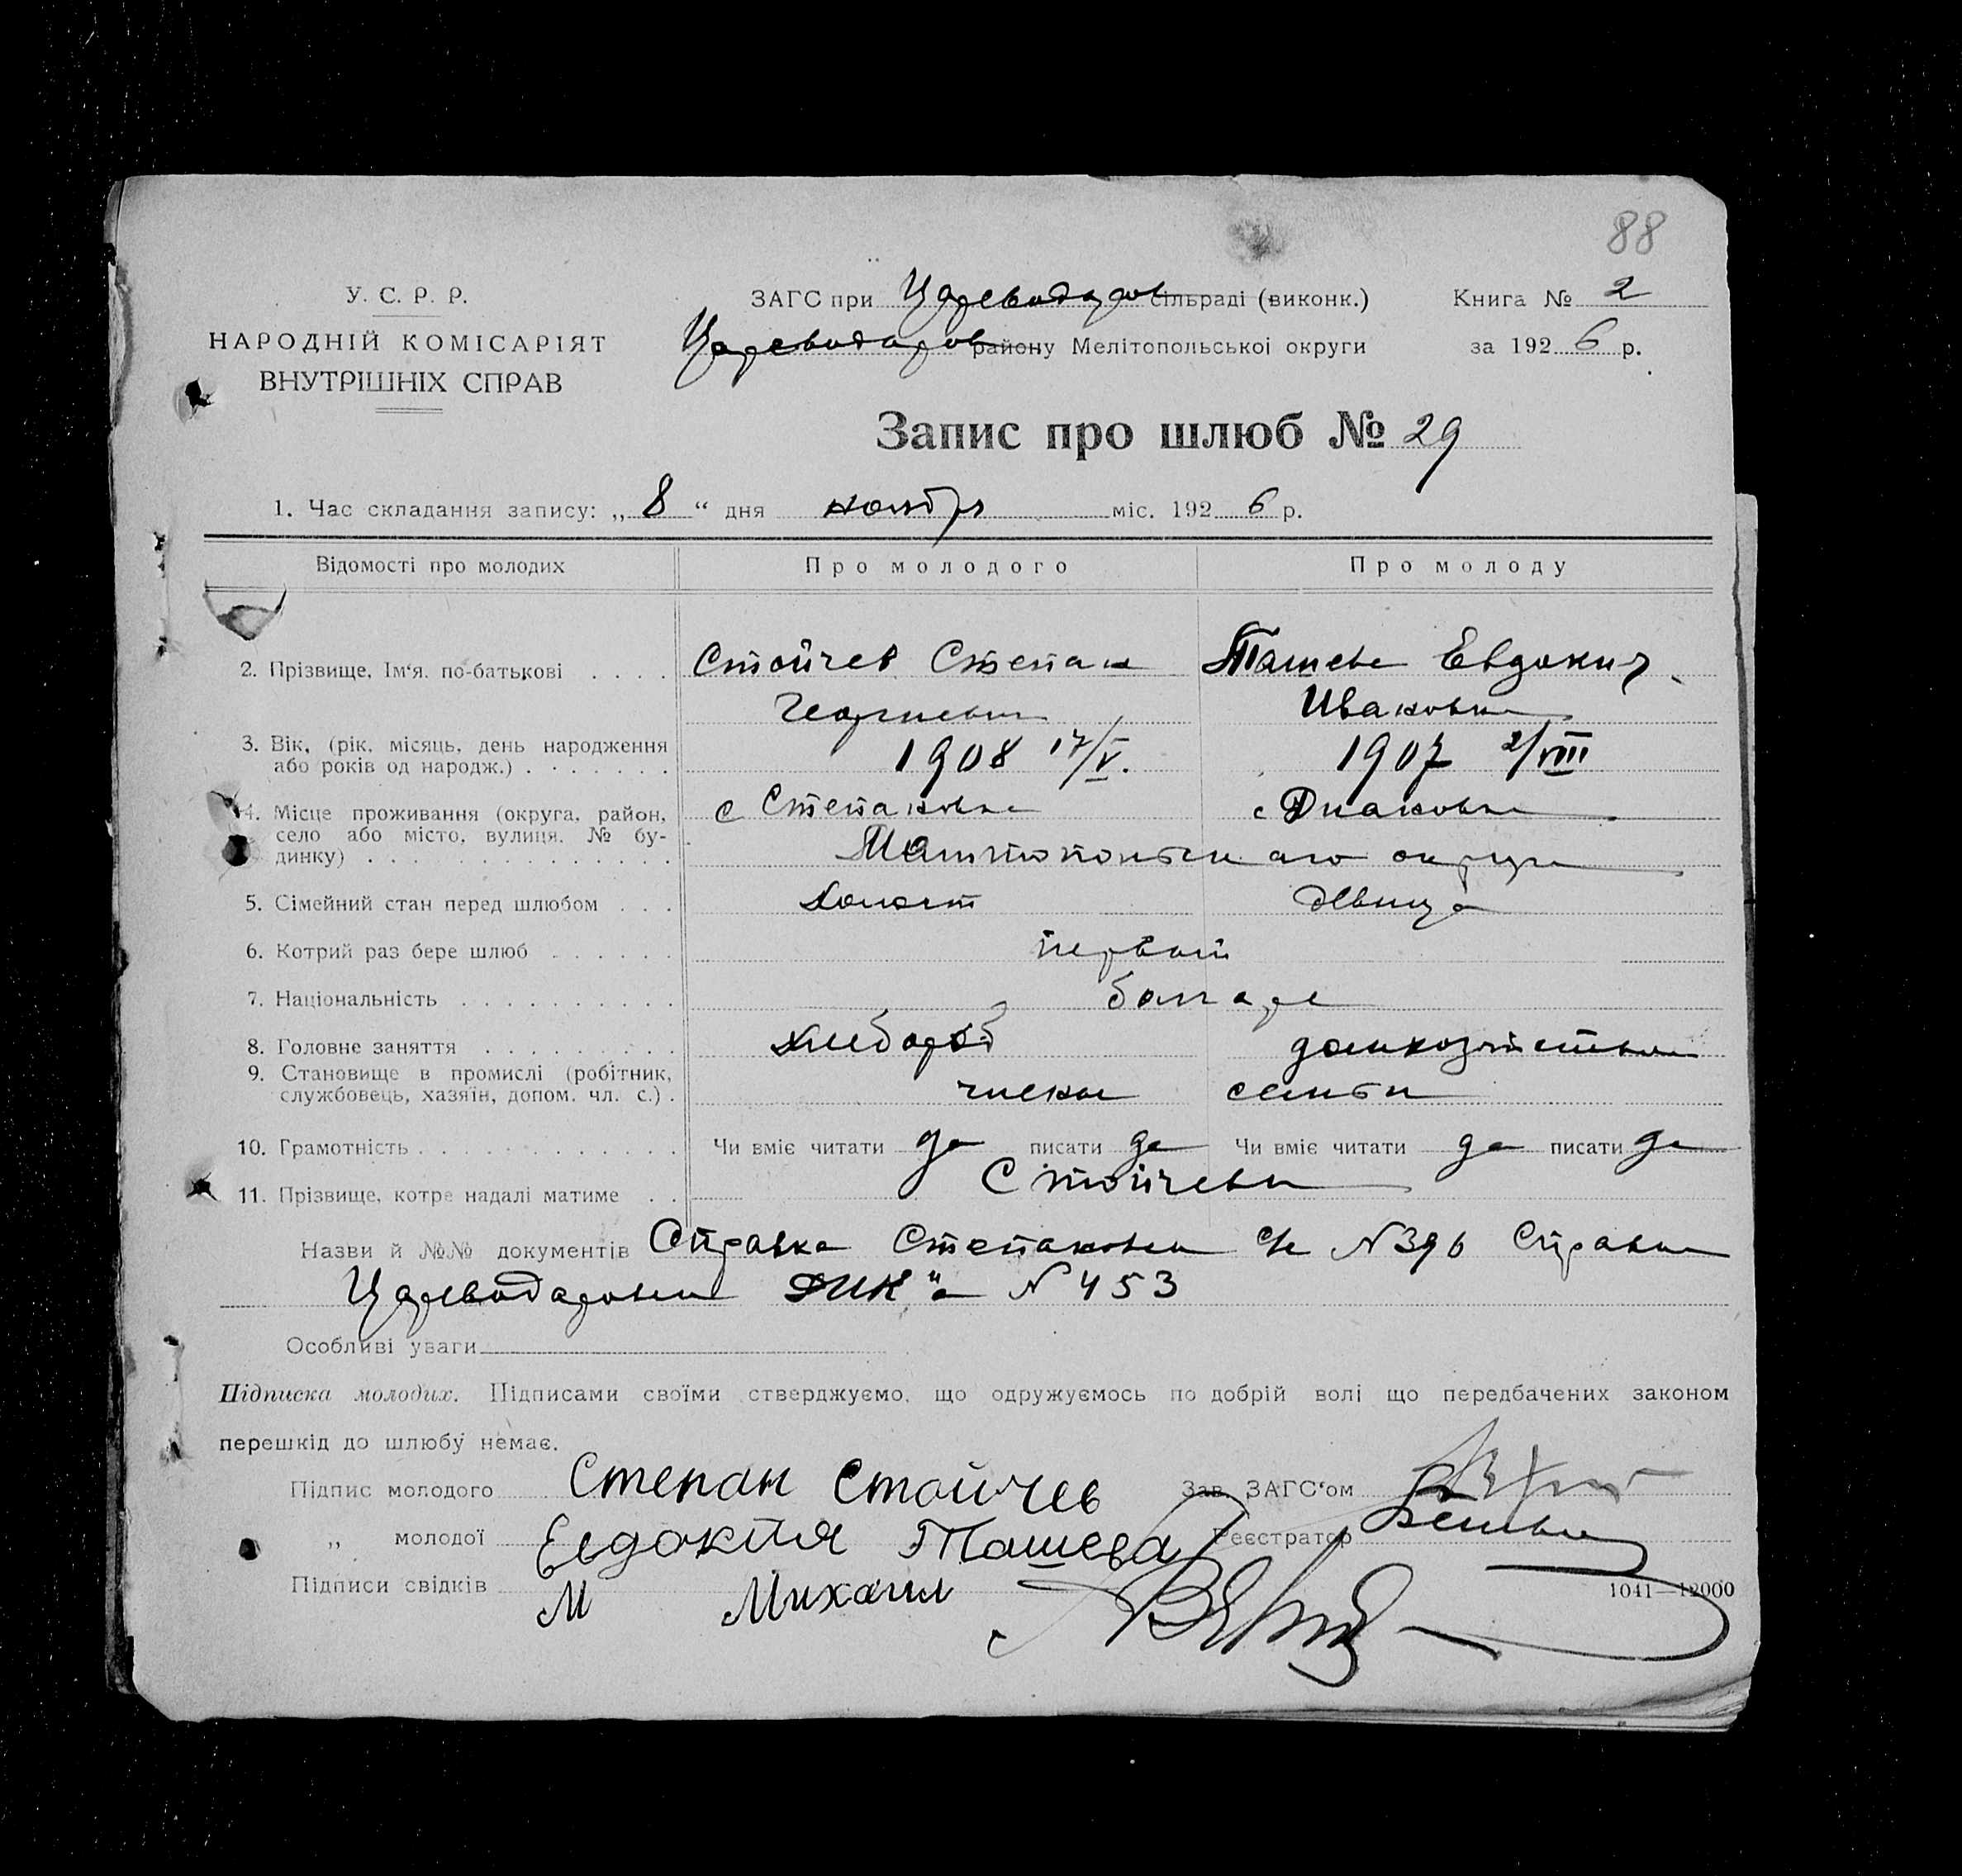 88
У. С. Р. Р.
НАРОДНІЙ КОМІСАРІЯТ
ВНУТРІШНІХ СПРАВ
ЗАГС при Цареводаров сільраді (виконк.)
Цареводаров району Мелітопольської округи
Книга № 2
за 1926 р.
Запис про шлюб № 29
1. Час складання запису: „8“ дня ноября міс. 1926 р.
Відомості про молодих Про молодого Про молоду
2. Прізвище, Ім‘я. по-батькові Стойчев Степан Ташева Евдокия
Георгиевич Ивановна
3. Вік, (рік, місяць, день народження
або років од народж.) 1908 17/V. 1907 2/VIII
4. Місце проживання (округа, район,
село або місто, вулиця, № бу-
динку) с Степановка с Диановка
округи
5. Сімейний стан перед шлюбом Холост девица
6. Котрий раз бере шлюб первый
7. Національність болгаре
8. Головне заняття хлебороб домхозяйством
9. Становище в промислі (робітник,
службовець, хазяїн, допом. чл. с.) члены семьи
10. Грамотність Чи вміє читати да писати да Чи вміє читати да писати да
11. Прізвище, котре надалі матиме Стойчевы
Назви й №№ документів Справка Степановки с/с N 396 Справка
Цареводаровки N 453
Особливі уваги
Підписка молодих. Підписами своїми стверджуємо, що одружуємось по добрій волі що передбачених законом
перешкід до шлюбу немає.
Підпис молодого Степан Стойчев Зав. ЗАГС‘ом
„ молодої Евдокия Ташева Реєстратор
Підписи свідків М Михаил
1041—12000